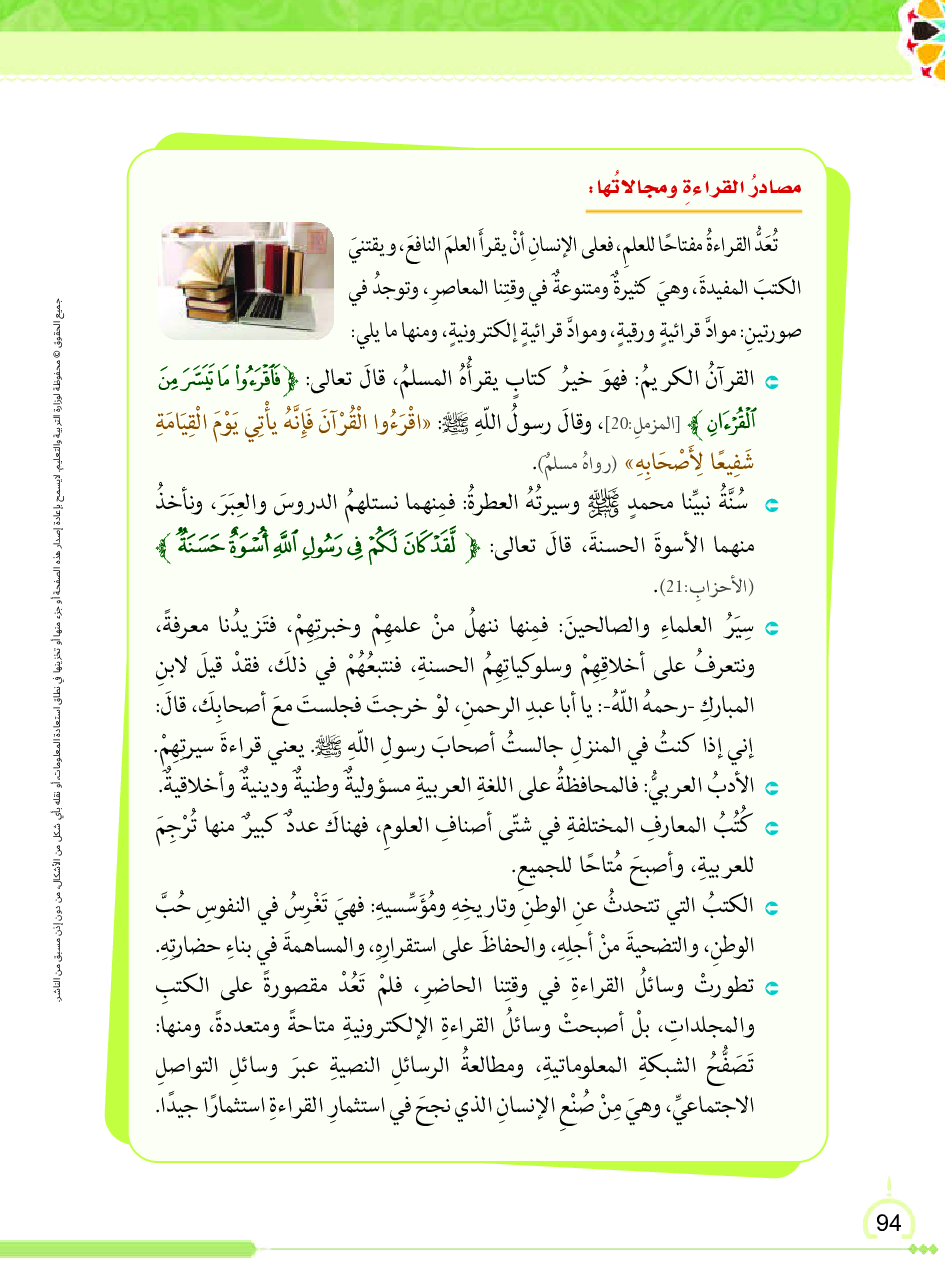 مصادرُ القراءةِ ومجالاتُها:
تُعَدُّ القراءةُ مفتاحًا للعلمِ، فعلى الإنسانِ أنْ يقرأَ العلمَ النافعَ، ويقتنيَ
الكتبَ المفيدةَ، وهيَ كثيرةٌ ومتنوعةٌ في وقتِنا المعاصرِ، وتوجدُ في
صورتينِ: موادَّ قرائيةٍ ورقيةٍ، وموادَّ قرائيةٍ إلكترونيةٍ، ومنها ما يلي:
القرآنُ الكريمُ: فهوَ خيرُ كتابٍ يقرأُهُ المسلمُ، قالَ تعالى: ﴿ فَٱقْرَءُوا۟ مَا تَيَسَّرَ مِنَ
ٱلْقُرْءَانِ ﴾ [المزمل:20]، وقالَ رسولُ اللّهِ ﷺ: «اقْرَءُوا الْقُرْآنَ فَإِنَّهُ يأْتِي يَوْمَ الْقِيَامَةِ
شَفِيعًا لِأَصْحَابِهِ» (رواهُ مسلمٌ).
سُنَّةُ نبيِّنا محمدٍ ﷺ وسيرتُهُ العطرةُ: فمِنهما نستلهمُ الدروسَ والعِبَرَ، ونأخذُ
منهما الأسوةَ الحسنةَ، قالَ تعالى: ﴿ لَّقَدْ كَانَ لَكُمْ فِى رَسُولِ ٱللَّهِ أُسْوَةٌ حَسَنَةٌ ﴾
(الأحزاب:21).
سِيَرُ العلماءِ والصالحينَ: فمِنها ننهلُ منْ علمهِمْ وخبرتِهِمْ، فتَزيدُنا معرفةً،
ونتعرفُ على أخلاقِهِمْ وسلوكياتِهِمُ الحسنةِ، فنتبعُهُمْ في ذلكَ، فقدْ قيلَ لابنِ
المباركِ -رحمهُ اللّهُ-: يا أبا عبدِ الرحمنِ، لوْ خرجتَ فجلستَ معَ أصحابِكَ، قالَ:
إني إذا كنتُ في المنزلِ جالستُ أصحابَ رسولِ اللّهِ ﷺ. يعني قراءةَ سيرتِهِمْ.
الأدبُ العربيُّ: فالمحافظةُ على اللغةِ العربيةِ مسؤوليةٌ وطنيةٌ ودينيةٌ وأخلاقيةٌ.
كُتُبُ المعارفِ المختلفةِ في شتّى أصنافِ العلومِ، فهناكَ عددٌ كبيرٌ منها تُرْجِمَ
للعربيةِ، وأصبحَ مُتاحًا للجميعِ.
الكتبُ التي تتحدثُ عنِ الوطنِ وتاريخِهِ ومُؤَسِّسيهِ: فهيَ تَغْرِسُ في النفوسِ حُبَّ
الوطنِ، والتضحيةَ منْ أجلِهِ، والحفاظَ على استقرارِهِ، والمساهمةَ في بناءِ حضارتِهِ.
تطورتْ وسائلُ القراءةِ في وقتِنا الحاضرِ، فلمْ تَعُدْ مقصورةً على الكتبِ
والمجلداتِ، بلْ أصبحتْ وسائلُ القراءةِ الإلكترونيةِ متاحةً ومتعددةً، ومنها:
تَصَفُّحُ الشبكةِ المعلوماتيةِ، ومطالعةُ الرسائلِ النصيةِ عبرَ وسائلِ التواصلِ
الاجتماعيِّ، وهيَ مِنْ صُنْعِ الإنسانِ الذي نجحَ في استثمارِ القراءةِ استثمارًا جيدًا.
جميع الحقوق © محفوظة لوزارة التربية والتعليم. لايسمح بإعادة إصدار هذه الصفحة أو جزء منها أو تخزينها في نطاق استعادة المعلومات، أو نقله بأي شكل من الأشكال، من دون إذن مسبق من الناشر.
94